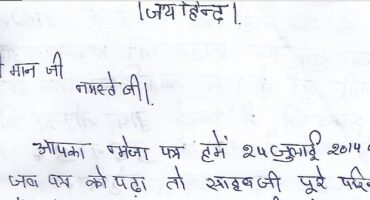 ।जय हिन्द।.
मान जी
नमस्ते जी।.
आपका भेजा पत्र हमें 24 जुलाई 2014
जब पत्र को पढ़ा तो साहबजी पूरे